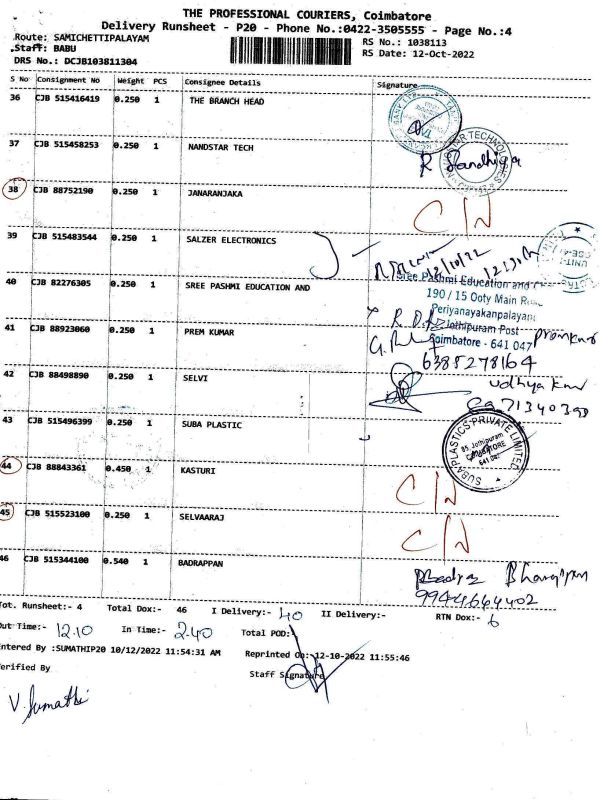 THE PROFESSIONAL COURIERS, Coimbatore
Delivery Runsheet - P20 - Phone No.:0422-3505555 - Page No.:4
Route: SAMICHETTIPALAYAM
RS No.: 1038113
Staff: BABU
RS Date: 12-Oct-2022
DRS No.: DCJB103811304
S No Consignment No Weight PCS Consignee Details Signature
36 CJB 515416419 0.250 1 THE BRANCH HEAD
37 CJB 515458253 0.250 1 NANDSTAR TECH
38 CJB 88752190 0.250 1 JANARANJAKA
C/N
39 CJB 515483544 0.250 1 SALZER ELECTRONICS
12/10/22
40 CJB 82276305 0.250 1 SREE PASHMI EDUCATION AND
Sree Pashmi Education and
190 / 15 Ooty Main
Periyanayakanpalayam
Jothipuram Post
Coimbatore - 641 047
41 CJB 88923060 0.250 1 PREM KUMAR
6385278164
42 CJB 88498890 0.250 1 SELVI
43 CJB 515496399 0.250 1 SUBA PLASTIC
SUBA PLASTICS PRIVATE LIMITED
85, Jothipuram
COIMBATORE
44 CJB 88843361 0.450 1 KASTURI
C/N
45 CJB 515523100 0.250 1 SELVAARAJ
C/N
46 CJB 515344100 0.540 1 BADRAPPAN
9944664402
Tot. Runsheet:- 4 Total Dox:- 46 I Delivery:- 40 II Delivery:- RTN Dox:- 6
Out Time:- 12.10 In Time:- 2.40 Total POD:-
Entered By :SUMATHIP20 10/12/2022 11:54:31 AM Reprinted On:-12-10-2022 11:55:46
Verified By Staff Signature
V. Sumathi